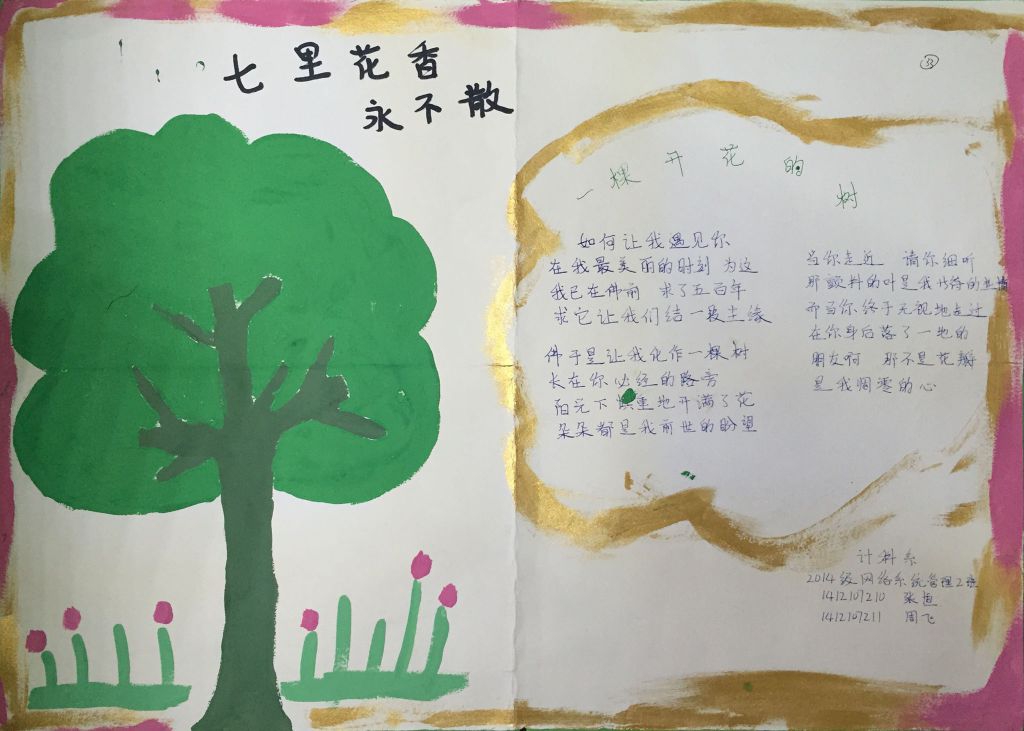 七里花香
永不散
33
一棵开花的树
如何让我遇见你
在我最美丽的时刻 为这
我已在佛前 求了五百年
求它让我们结一段尘缘
佛于是让我化作一棵树
长在你必经的路旁
阳光下慎重地开满了花
朵朵都是我前世的盼望
当你走近 请你细听
那颤抖的叶是我等待的热情
而当你终于无视地走过
在你身后落了一地的
朋友啊 那不是花瓣
是我凋零的心
计科系
2014级网络系统管理2班
1412107210 张
1412107211 周飞